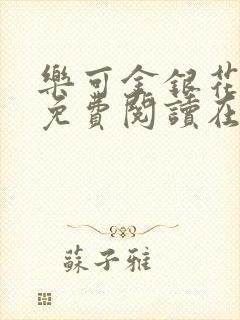 樂可金銀花
免費閱讀在
蘇子雅